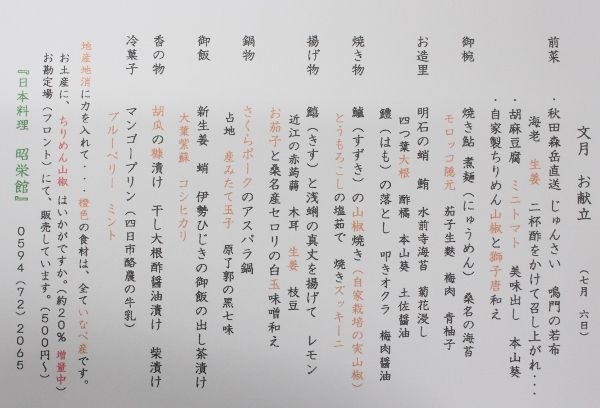 文月　お献立
（七月　六日）
前菜　・秋田森岳直送 じゅんさい　鳴門の若布
海老　生姜　二杯酢をかけて召し上がれ・・・
・胡麻豆腐　ミニトマト　美味出し　本山葵
・自家製ちりめん山椒と獅子唐和え
御椀　焼き鮎 煮麺（にゅうめん）　桑名の海苔
モロッコ隠元　茄子生麩　梅肉　青柚子
お造里　明石の蛸　鮪　水前寺海苔　菊花浸し
四つ葉大根　酢橘　本山葵　土佐醤油
鱧（はも）の落とし　叩きオクラ　梅肉醤油
焼き物　鱸（すずき）の山椒焼き（自家栽培の実山椒）
とうもろこしの塩茹で　焼きズッキーニ
揚げ物　鱚（きす）と浅蜊の真丈を揚げて　レモン
近江の赤蒟蒻　木耳　生姜　枝豆
お茄子と桑名産セロリの白玉味噌和え
鍋物　さくらポークのアスパラ鍋
占地　産みたて玉子　原了郭の黒七味
御飯　新生姜　蛸　伊勢ひじきの御飯の出し茶漬け
大葉紫蘇　コシヒカリ
香の物　胡瓜の糠漬け　干し大根酢醤油漬け　柴漬け
冷菓子　マンゴープリン（四日市酪農の牛乳）
ブルーベリー　ミント
地産地消に力を入れて・・・橙色の食材は、全ていなべ産です。
お土産に、ちりめん山椒はいかがですか。（約２０％ 増量中）
お勘定場（フロント）にて、販売しています。（５００円～）
『日本料理　昭栄館』　０５９４（７２）２０６５